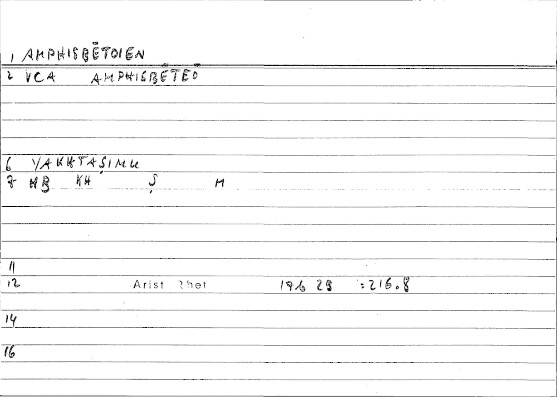 1 AMPHISBĒTOIEN
2 VCA AMPHISBĒTEŌ
6 YAKHTAṢIMU
7 KH Ṣ M
11
12 Arist Rhet :216.8
14
16